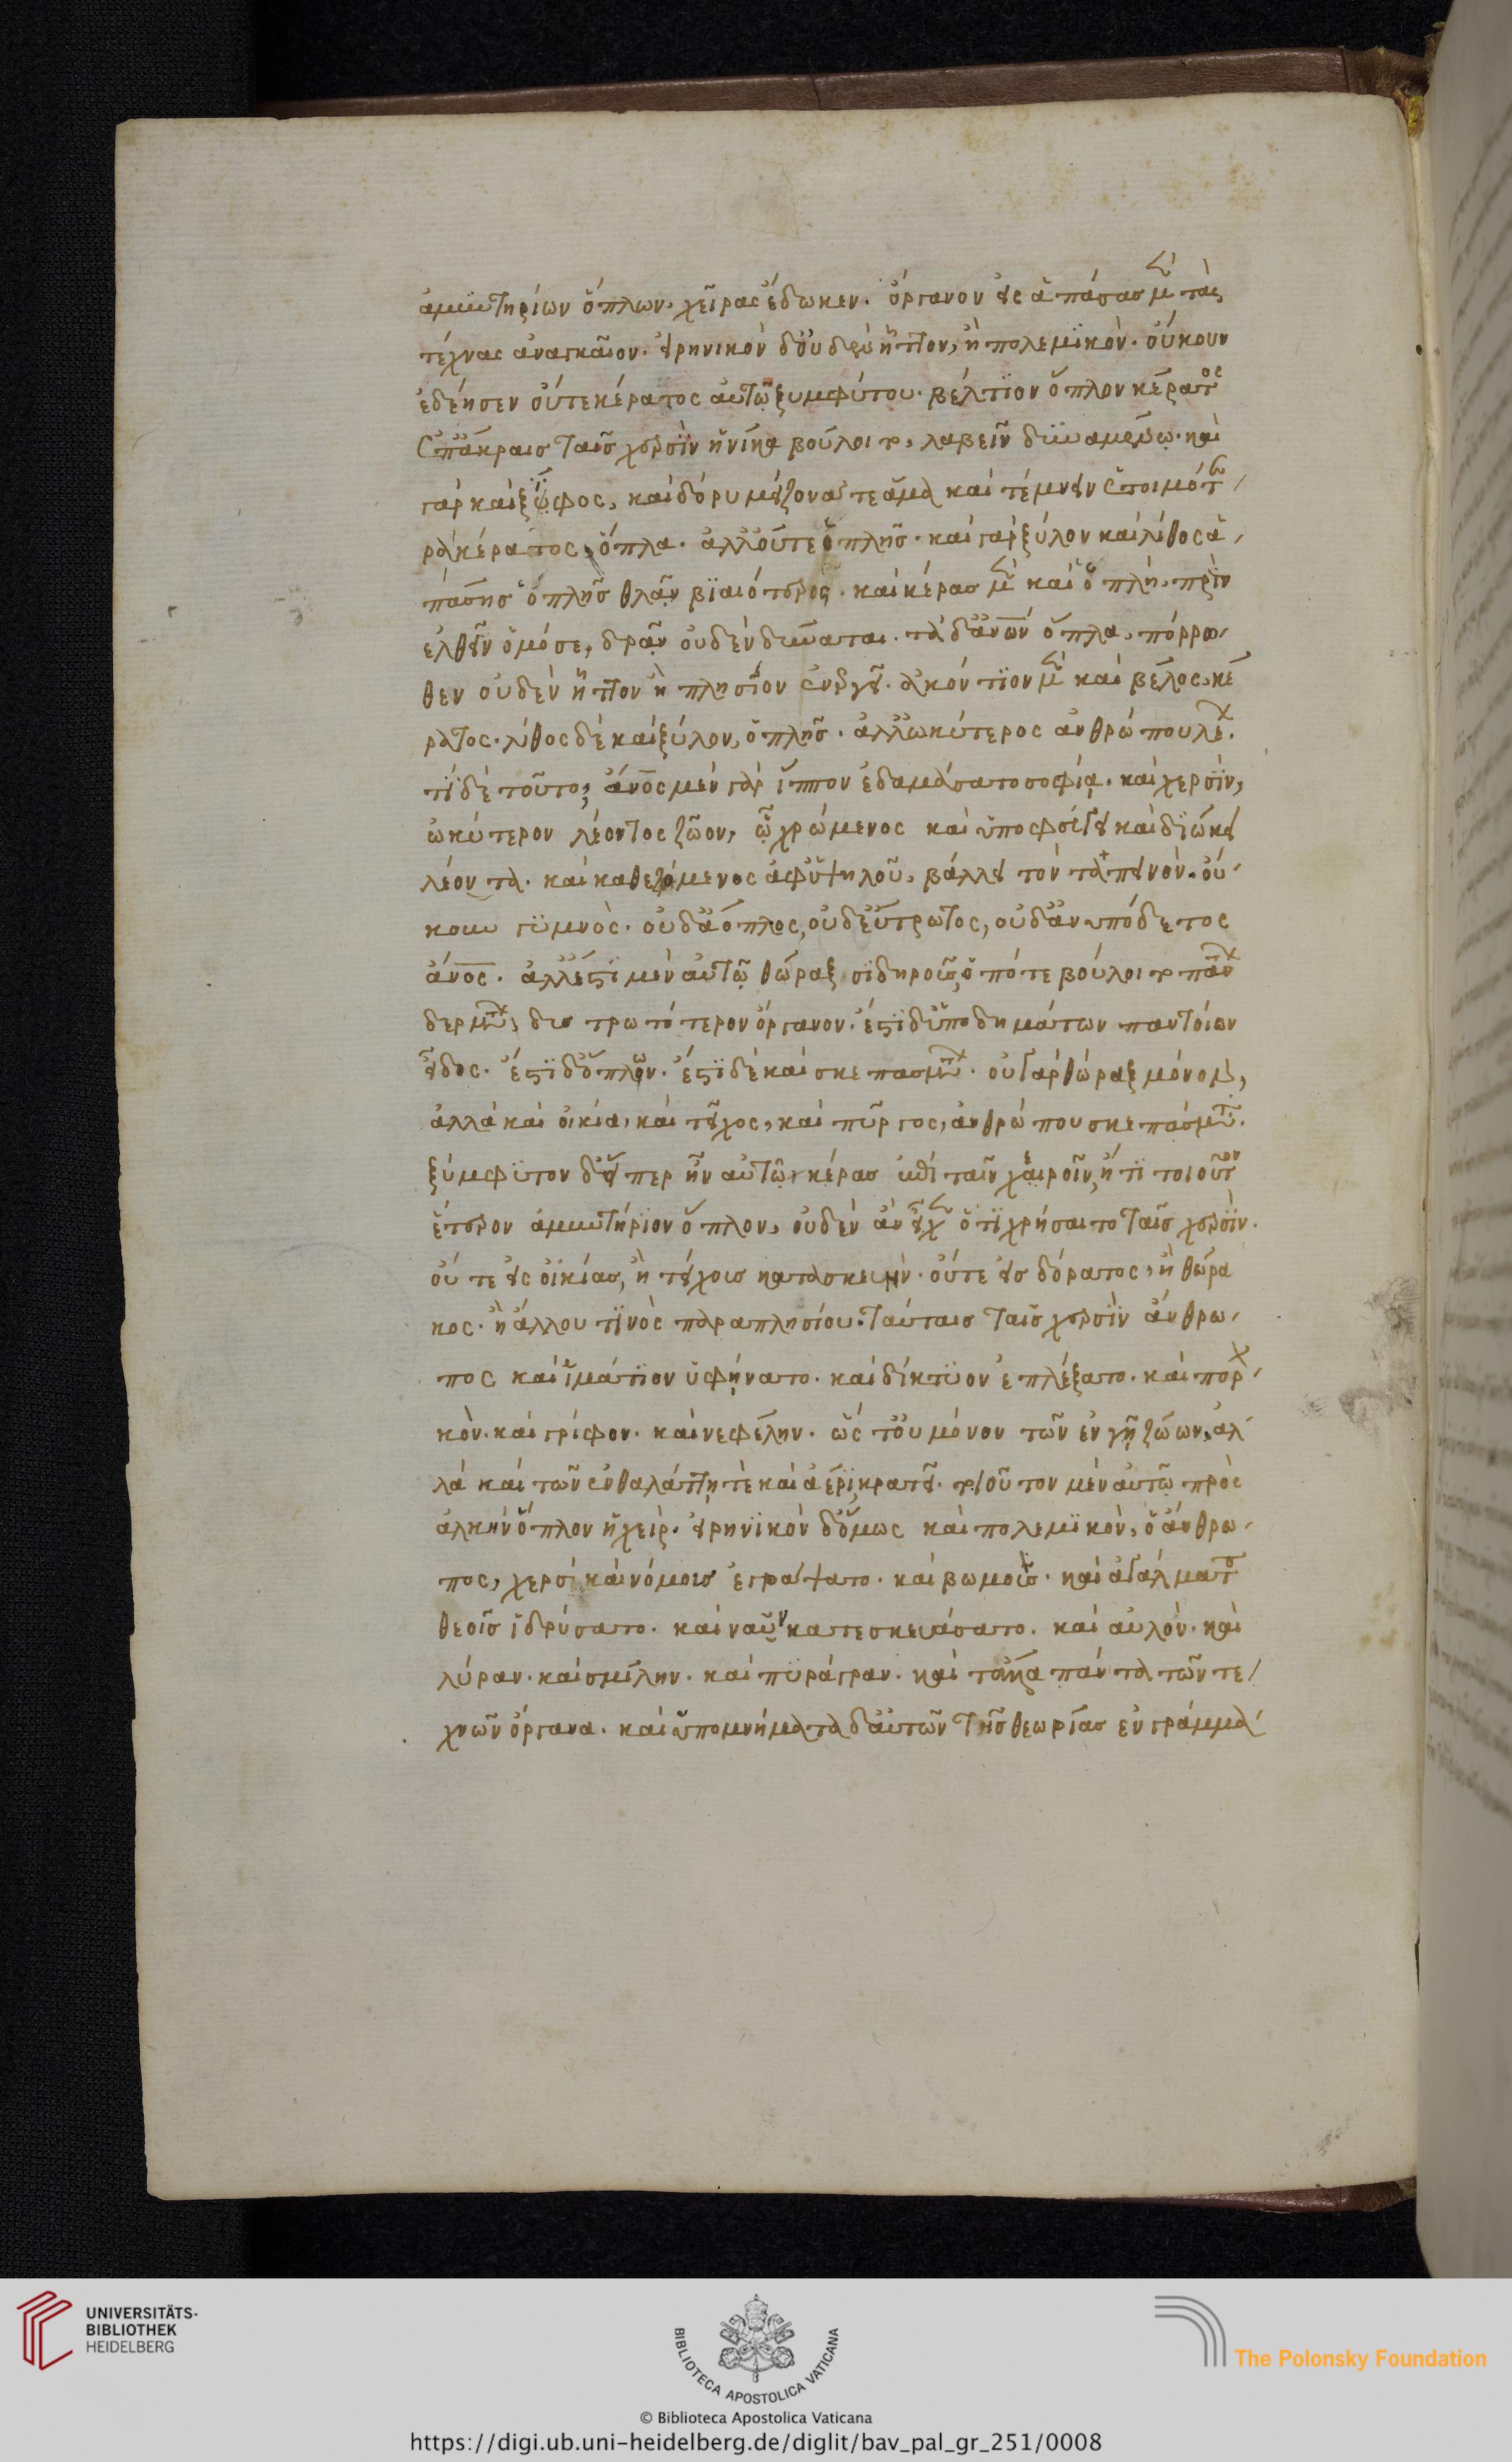 ἀμυντηρίων ὅπλων. χεῖρας ἔδωκεν. ὄργανον εἰς ἁπάσας μὲν τὰς
τέχνας ἀναγκαῖον. εἰρηνικὸν δ' οὐδὲν ἧττον, ἢ πολεμϊκὸν. οὔκουν
ἐδέησεν οὔτε κέρατος αὐτῶ ξυμφύτου. βέλτϊον ὅπλον κέρατος
ἐπ' ἄκραις ταῖς χερσὶν ἡνίκα βούλοιτο, λαβεῖν δυναμένω. καὶ
γὰρ καὶ ξίφος, καὶ δόρυ μείζονά τε ἅμα καὶ τέμνειν ἑτοιμότε
ρα κέρατος, ὅπλα. ἀλλ' οὔτε ὁπλῆς. καὶ γὰρ ξύλον καὶ λίθος ἁ
πάσης ὁπλῆς θλᾶν βϊαιότερος. καὶ κέρας μὲν καὶ ὁπλὴ. πρὶν
ἐλθεῖν ὁμόσε, δρᾶν οὐδὲν δύναται. τὰ δ' ἀνῶν ὅπλα, πόρρω
θεν οὐδὲν ἧττον ἢ πλησίον ἐνεργεῖ. ἀκόντϊον μὲν καὶ βέλος, κέ
ρατος. λίθος δὲ καὶ ξύλον, ὁπλῆς. ἀλλ' ὠκύτερος ἀνθρώπου λέ.
τί δὲ τοῦτο; ἄνος μὲν γὰρ ἵππον ἐδαμάσατο σοφίᾳ. καὶ χερσὶν,
ὠκύτερον λέοντος ζῶον, ᾧ χρώμενος καὶ ὑποφεύγει καὶ διώκει
λέοντα. καὶ καθεζόμενος ἀφ' ὑψηλοῦ, βάλλει τὸν ταπεινόν. οὔ
κουν γϋμνὸς. οὐδ' ἄοπλος, οὐδ' εὔτρωτος, οὐδ' ἀνυπόδετος
ἄνος. ἀλλ' ἔστϊ μὲν αὐτῶ θώραξ σϊδηροῦς, ὁπότε βούλοιτο πάν
δερμάτων δυστρωτότερον ὄργανον. ἔστϊ δ' ὑποδημάτων παντοίων
εἶδος. ἔστϊ δ' ὅπλων. ἔστϊ δὲ καὶ σκεπασμάτων. οὐ γὰρ θώραξ μόνον,
ἀλλὰ καὶ οἰκία, καὶ τεῖχος, καὶ πῦργος, ἀνθρώπου σκεπάσματα.
ξύμφϋτον δ' εἴπερ ἦν αὐτῶ κέρας ἐπὶ ταῖν χαιροῖν, ἤ τϊ τοιοῦτον
ἕτερον ἀμυντήρϊον ὅπλον, οὐδὲν ἂν εἶχεν ὅ τϊ χρήσαιτο ταῖς χερσὶν.
οὔτε εἰς οἰκίας, ἢ τείχους κατασκευὴν. οὔτε εἰς δόρατος, ἢ θώρα
κος. ἢ ἄλλου τϊνὸς παραπλησίου. ταύταις ταῖς χερσὶν ἄνθρω
πος καὶ ἱμάτϊον ὑφήνατο. καὶ δίκτϋον ἐπλέξατο. καὶ πόρ
κον. καὶ γρίφον. καὶ νεφέλην. ὥς τ' οὐ μόνον τῶν ἐν γῇ ζώων, ἀλ
λὰ καὶ τῶν ἐν θαλάττῃ τὲ καὶ ἀέρϊ, κρατεῖ. τοιοῦτον μὲν αὐτῶ πρὸς
ἀλκὴν ὅπλον ἡ χεὶρ. εἰρηνϊκὸν δ' ὅμως καὶ πολεμϊκὸν, ὁ ἄνθρω
πος, χερσὶ καὶ νόμους ἐγράψατο. καὶ βωμοὺς. καὶ ἀγάλματα
θεοῖς ἱδρύσατο. καὶ ναῦν κατεσκευάσατο. καὶ αὐλόν. καὶ
λύραν. καὶ σμίλην. καὶ πϋράγραν. καὶ τἄλλα πάντα τῶν τε
χνῶν ὄργανα. καὶ ὑπομνήματα δ' αὐτῶν τῆς θεωρίας ἐν γράμμα
UNIVERSITÄTS-
BIBLIOTHEK
HEIDELBERG
BIBLIOTECA APOSTOLICA VATICANA
The Polonsky Foundation
© Biblioteca Apostolica Vaticana
https://digi.ub.uni-heidelberg.de/diglit/bav_pal_gr_251/0008